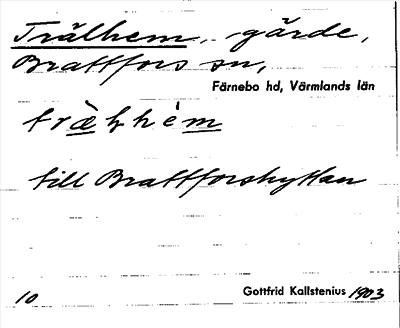 Trälhem, gärde,
Brattfors sn,
Färnebo hd, Värmlands län
till Brattforshyttan
10
Gottfrid Kallstenius 1903